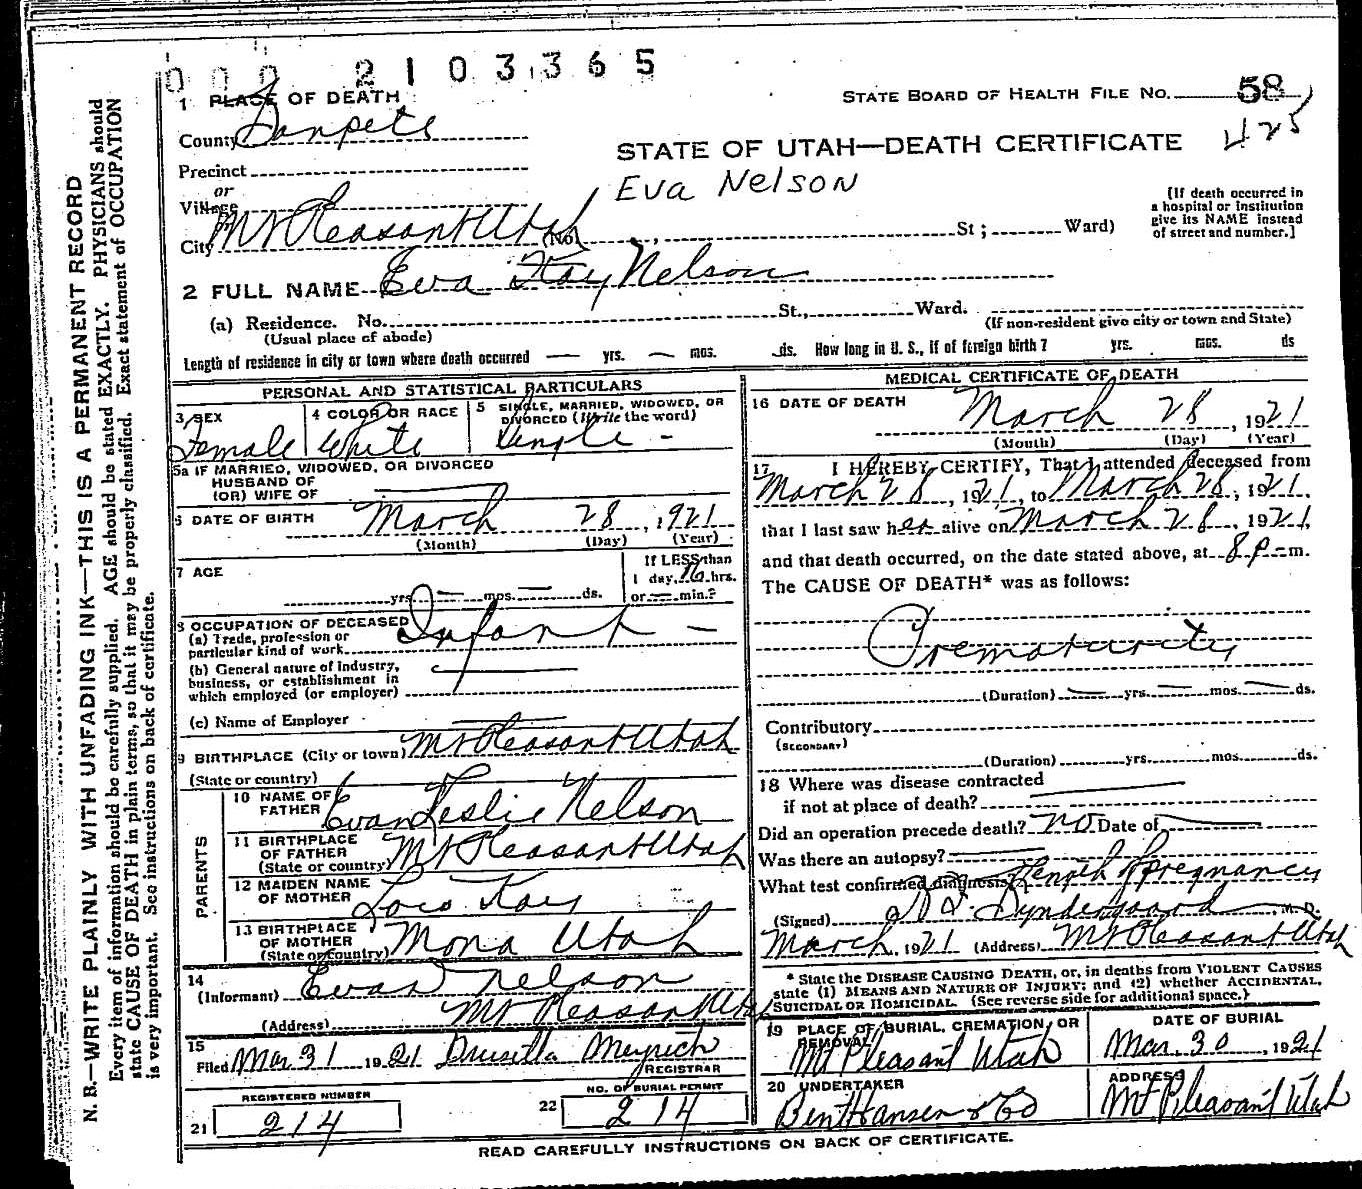 000 2103365
1 PLACE OF DEATH
STATE BOARD OF HEALTH FILE NO. 58
425
County Sanpete
STATE OF UTAH—DEATH CERTIFICATE
Precinct
Eva Nelson
or
Village
[If death occurred in
a hospital or institution
give its NAME instead
of street and number.]
City Mt Pleasant Utah (No. , St ; Ward)
2 FULL NAME Eva Kay Nelson
(a) Residence. No. St., Ward.
(Usual place of abode) (If non-resident give city or town and State)
Length of residence in city or town where death occurred — yrs. — mos. ds. How long in U. S., if of foreign birth ? yrs. mos. ds
PERSONAL AND STATISTICAL PARTICULARS
3 SEX Female
4 COLOR OR RACE White
5 SINGLE, MARRIED, WIDOWED, OR
DIVORCED (Write the word) Single -
5a IF MARRIED, WIDOWED, OR DIVORCED
HUSBAND OF
(OR) WIFE OF
6 DATE OF BIRTH March 28, 1921
(Month) (Day) (Year)
7 AGE
yrs. — mos. — ds.
If LESS than
1 day, 16 hrs.
or — min.?
8 OCCUPATION OF DECEASED
(a) Trade, profession or
particular kind of work Infant —
(b) General nature of industry,
business, or establishment in
which employed (or employer)
(c) Name of Employer
9 BIRTHPLACE (City or town) Mt Pleasant Utah
(State or country)
PARENTS
10 NAME OF
FATHER Evan Leslie Nelson
11 BIRTHPLACE
OF FATHER
(State or country) Mt Pleasant Utah
12 MAIDEN NAME
OF MOTHER Kay
13 BIRTHPLACE
OF MOTHER
(State or country) Mona Utah
14
(Informant) Evan Nelson
(Address) Mt Pleasant Utah
15
Filed Mar 31 1921 Drusilla
REGISTRAR
REGISTERED NUMBER
21 214
NO. OF BURIAL PERMIT
22 214
MEDICAL CERTIFICATE OF DEATH
16 DATE OF DEATH March 28, 1921
(Month) (Day) (Year)
17 I HEREBY CERTIFY, That I attended deceased from
March 28, 1921, to March 28, 1921,
that I last saw her alive on March 28, 1921,
and that death occurred, on the date stated above, at 8 p m.
The CAUSE OF DEATH* was as follows:
Prematurity
(Duration) — yrs. — mos. — ds.
Contributory
(SECONDARY)
(Duration) yrs. mos. ds.
18 Where was disease contracted
if not at place of death?
Did an operation precede death? no Date of
Was there an autopsy?
What test confirmed diagnosis? Length of pregnancy
(Signed) , M. D.
March, 1921 (Address) Mt Pleasant Utah
* State the DISEASE CAUSING DEATH, or, in deaths from VIOLENT CAUSES
state (1) MEANS AND NATURE OF INJURY; and (2) whether ACCIDENTAL,
SUICIDAL OR HOMICIDAL. (See reverse side for additional space.)
19 PLACE OF BURIAL, CREMATION, OR
REMOVAL
Mt Pleasant Utah
DATE OF BURIAL
Mar. 30, 1921
20 UNDERTAKER
Bent Hansen & Co
ADDRESS
Mt Pleasant Utah
READ CAREFULLY INSTRUCTIONS ON BACK OF CERTIFICATE.
N. B.—WRITE PLAINLY WITH UNFADING INK—THIS IS A PERMANENT RECORD
Every item of information should be carefully supplied. AGE should be stated EXACTLY. PHYSICIANS should
state CAUSE OF DEATH in plain terms, so that it may be properly classified. Exact statement of OCCUPATION
is very important. See instructions on back of certificate.